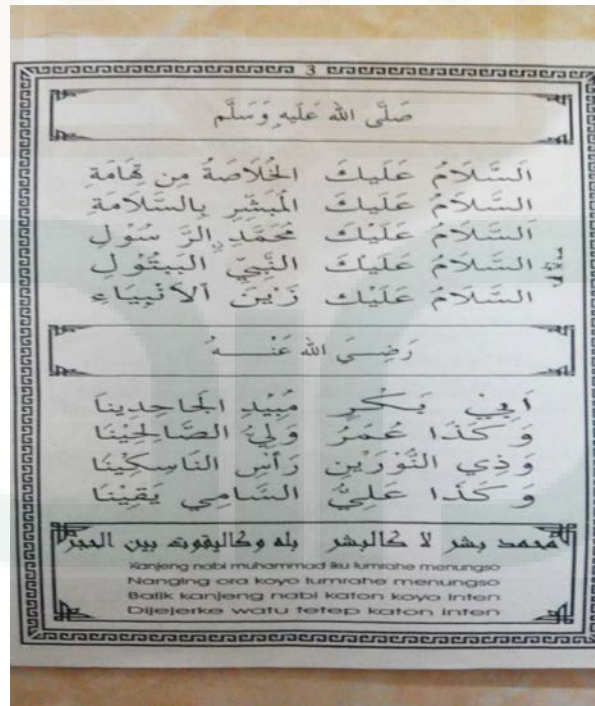 3
صَلَّى الله عَلَيهِ وَسَلَّم
اَلسَّلَامُ عَلَيكَ الخُلَاصَةُ مِن تِهَامَةِ
اَلسَّلَامُ عَلَيكَ المُبَشِّرِ بِالسَّلَامَةِ
اَلسَّلَامُ عَلَيْكَ مُحَمَّدِ الرَّسُوْلِ
السَّلَامُ عَلَيْكَ النَّبِيِّ البَيتُولِ
السَّلَامُ عَلَيْكَ زَيْنَ الْاَنْبِيَاءِ
رَضِيَ الله عَنْهُ
اَبِيْ بَكْرٍ مُبِيْدِ الجَاحِدِينَا
وَكَذَا عُمَرُ وَلِيُّ الصَّالِحِيْنَا
وَذِي النُّوْرَيْنِ رَأْسِ النَاسِكِيْنَا
وَكَذَا عَلِيٌّ السَّامِي يَقِيْنَا
محمد بشر لا كالبشر بله وكاليقوت بين الحجر
Kanjeng nabi muhammad iku lumrahe menungso
Nanging ora koyo lumrahe menungso
Balik kanjeng nabi katon koyo inten
Dijejerke watu tetep katon inten